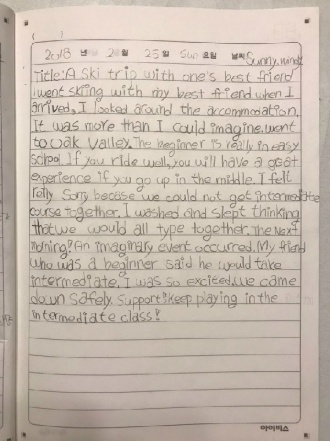 ( )
2018 년 2월 25일 Sun 요일 날씨 Sunny, windy
Title: A Ski trip with one's best friend
I went skiing with my best friend when I
arrived, I looked around the accommodation.
It was more than I could imagine. went
to Oak Valley. The beginner is really in easy
school. If you ride well, you will have a great
experience if you go up in the middle. I felt
really Sorry because we could not get intermediate
course together. I washed and slept thinking
that we would all type together. The Next
morning! An imaginary event occurred. My friend
who was a beginner said he would take
intermediate. I was so excited. we came
down safely. Support! keep playing in the
intermediate class!